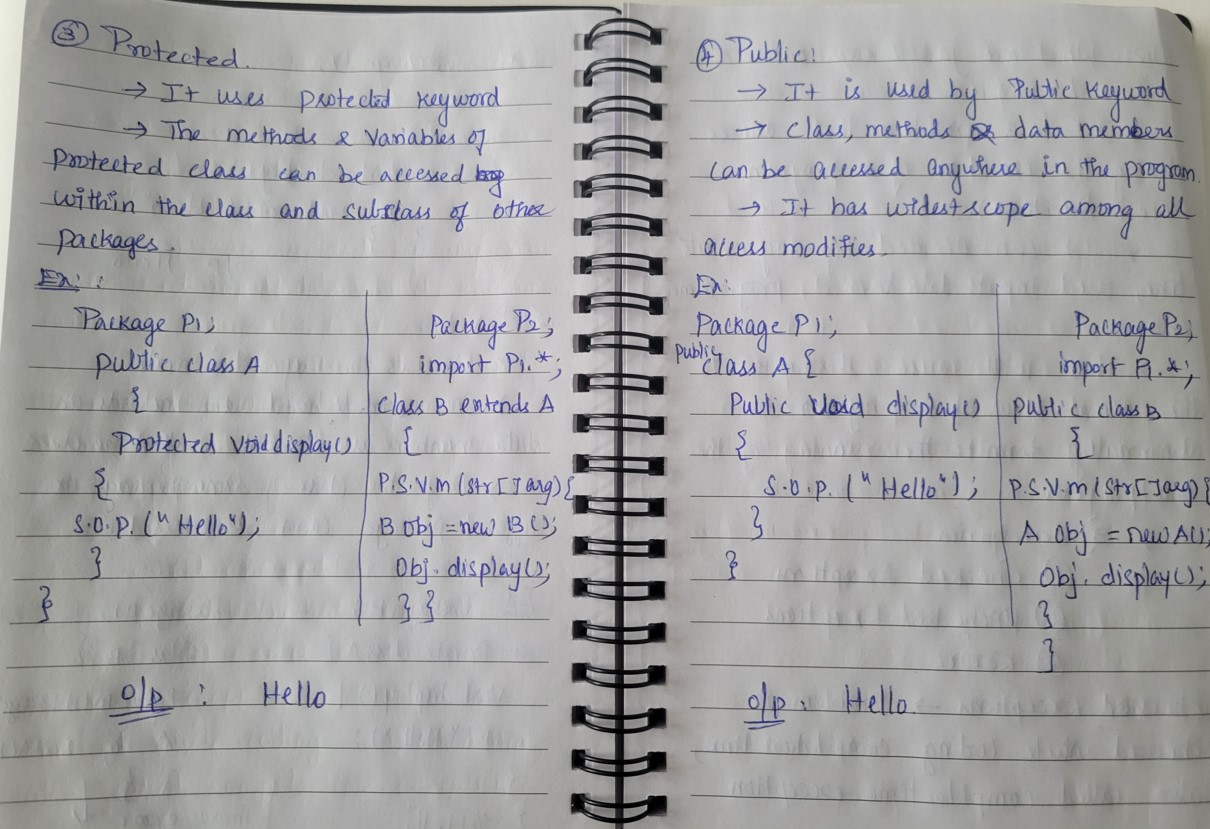 ③ Protected.
→ It uses protected keyword
→ The methods & variables of
protected class can be accessed
within the class and subclass of other
packages.
Ex: :
Package P1;
public class A
{
Protected Void display()
{
S.O.P. ("Hello");
}
}
Package P2;
import P1.*;
Class B extends A
{
P.S.V.m (Str[] arg) {
B Obj = new B();
Obj. display();
} }
O/P : Hello
④ Public:
→ It is used by Public keyword
→ Class, methods & data members
can be accessed anywhere in the program.
→ It has widest scope among all
access modifies.
Ex:
Package P1;
public
Class A {
Public Void display()
{
S.O.P. ("Hello");
}
}
Package P2;
import P1.*;
public class B
{
P.S.V.m (Str[] arg) {
A Obj = new A();
Obj. display();
}
}
O/P : Hello